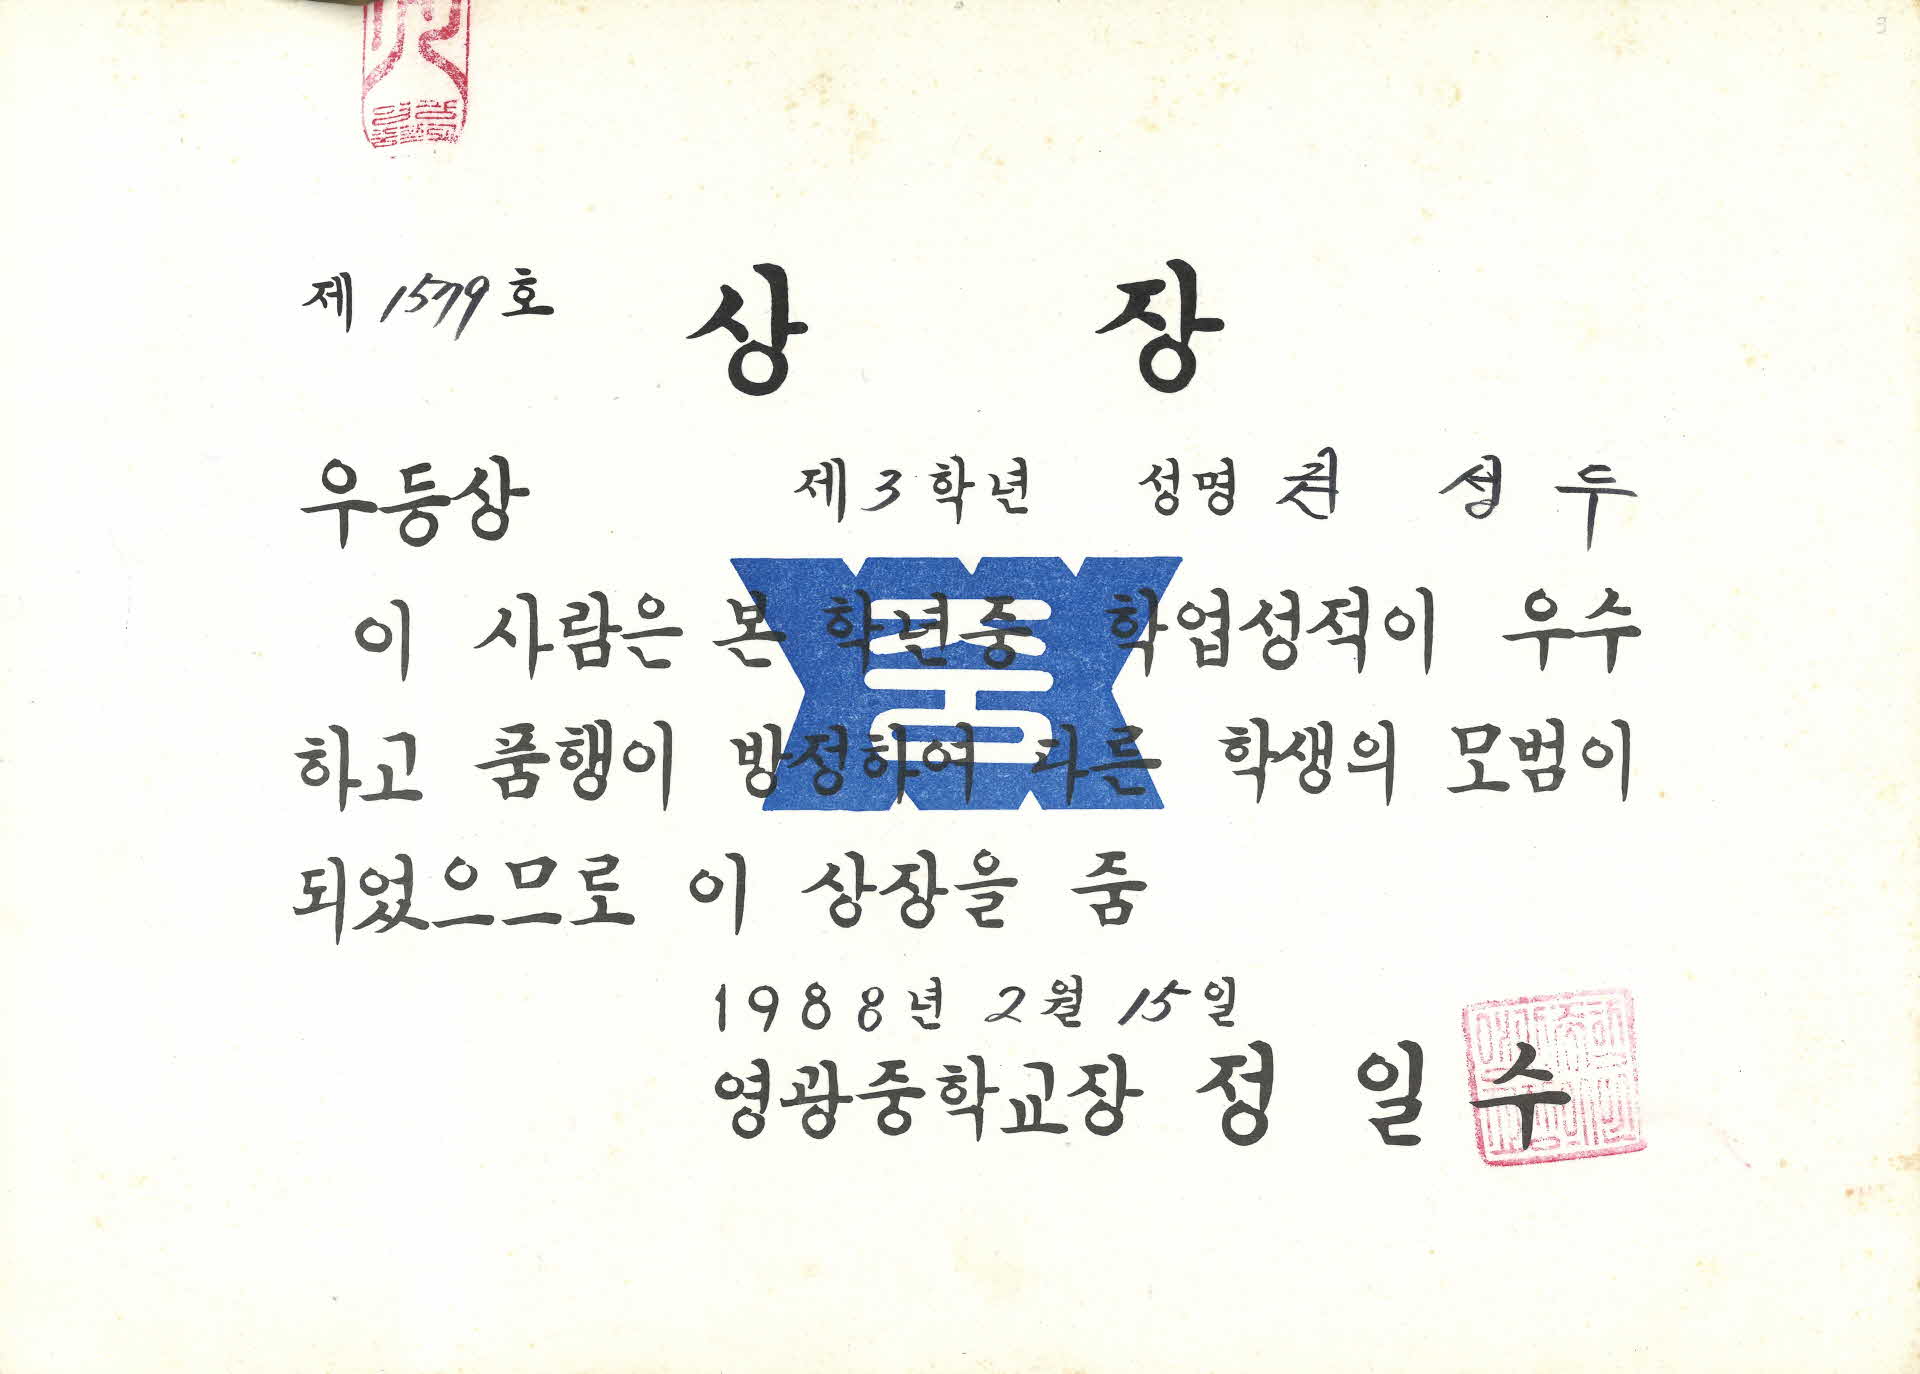 제 1579 호
상 장
우등상 제 3 학년 성명 권 성 두
이 사람은 본 학년중 학업성적이 우수
하고 품행이 방정하여 다른 학생의 모범이
되었으므로 이 상장을 줌
1988년 2월 15일
영광중학교장 정 일 수